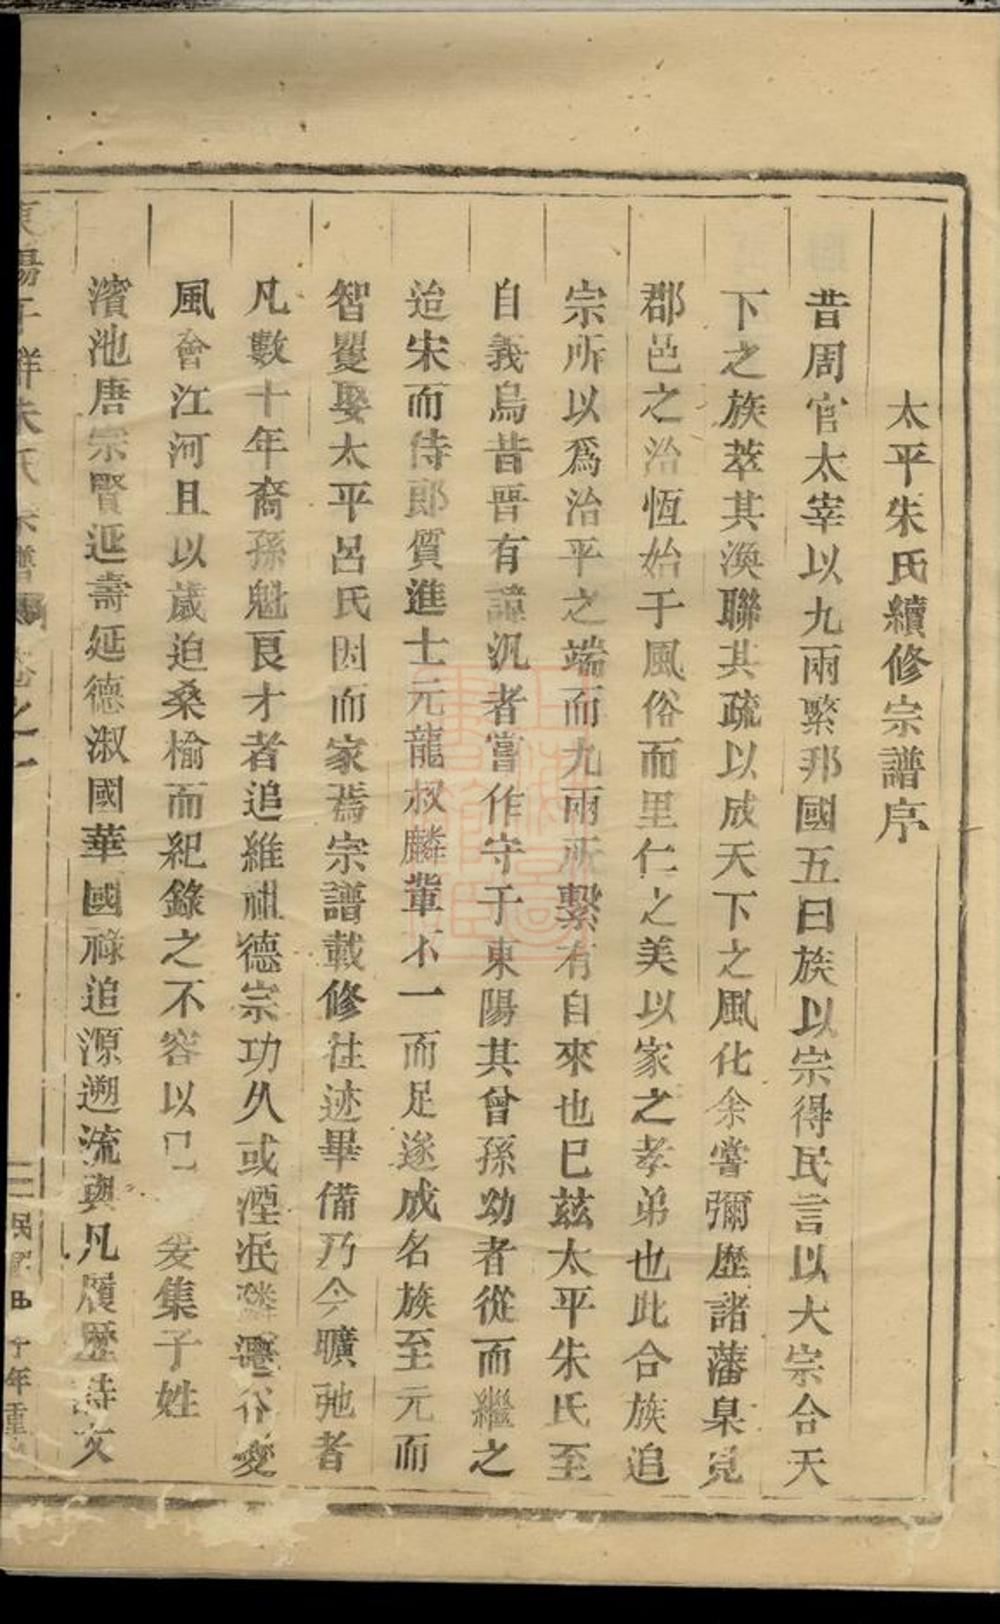 太平朱氏續修宗譜序
昔周官太宰以九兩繫邦國五曰族以宗得民言以大宗合天
下之族萃其渙聯其疏以成天下之風化余嘗彌歷諸藩臬見
郡邑之治恆始于風俗而里仁之美以家之孝弟也此合族追
宗所以爲治平之端而九兩所繫有自來也巳兹太平朱氏至
自義烏昔晋有諱汎者嘗作守于東陽其曾孫幼者從而繼之
迨宋而侍郎質進士元龍叔麟輩不一而足遂成名族至元而
智瞿娶太平呂氏因而家焉宗譜載修徃述畢備乃今曠弛者
凡數十年裔孫魁良才者追維祖德宗功久或湮泯遷谷變
風會江河且以歲迫桑榆而紀錄之不容以巳爰集子姓
濱池唐宗賢延壽延德淑國華國祿追源遡流與凡履歷詩文
東陽千祥朱氏宗譜 卷之一 民國 十年重